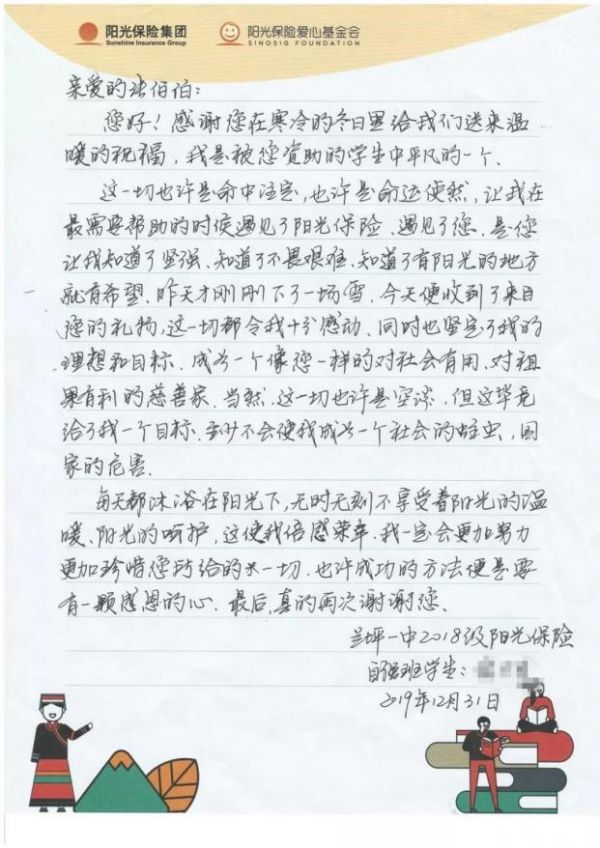 阳光保险集团 阳光保险爱心基金会
Sunshine Insurance Group SINOSIG FOUNDATION
亲爱的张伯伯:
您好!感谢您在寒冷的冬日里给我们送来温
暖的祝福,我是被您资助的学生中平凡的一个、
这一切也许是命中注定,也许是命运使然,让我在
最需要帮助的时候遇见了阳光保险、遇见了您、是您
让我知道了坚强、知道了不畏艰难、知道了有阳光的地方
就有希望、昨天才刚刚下了一场雪,今天便收到了来自
您的礼物,这一切都令我十分感动、同时也坚定了我的
理想和目标、成为一个像您一样的对社会有用、对祖
果有利的慈善家、当然、这一切也许是空谈、但这毕竟
给了我一个目标、至少不会使我成为一个社会的蛀虫,国
家的危害、
每天都沐浴在阳光下,无时无刻不享受着阳光的温
暖、阳光的呵护,这使我倍感荣幸、我一定会更加努力
更加珍惜您所给的一切、也许成功的方法便是要
有一颗感恩的心、最后,真的再次谢谢您、
兰坪一中2018级阳光保险
自强班学生:
2019年12月31日